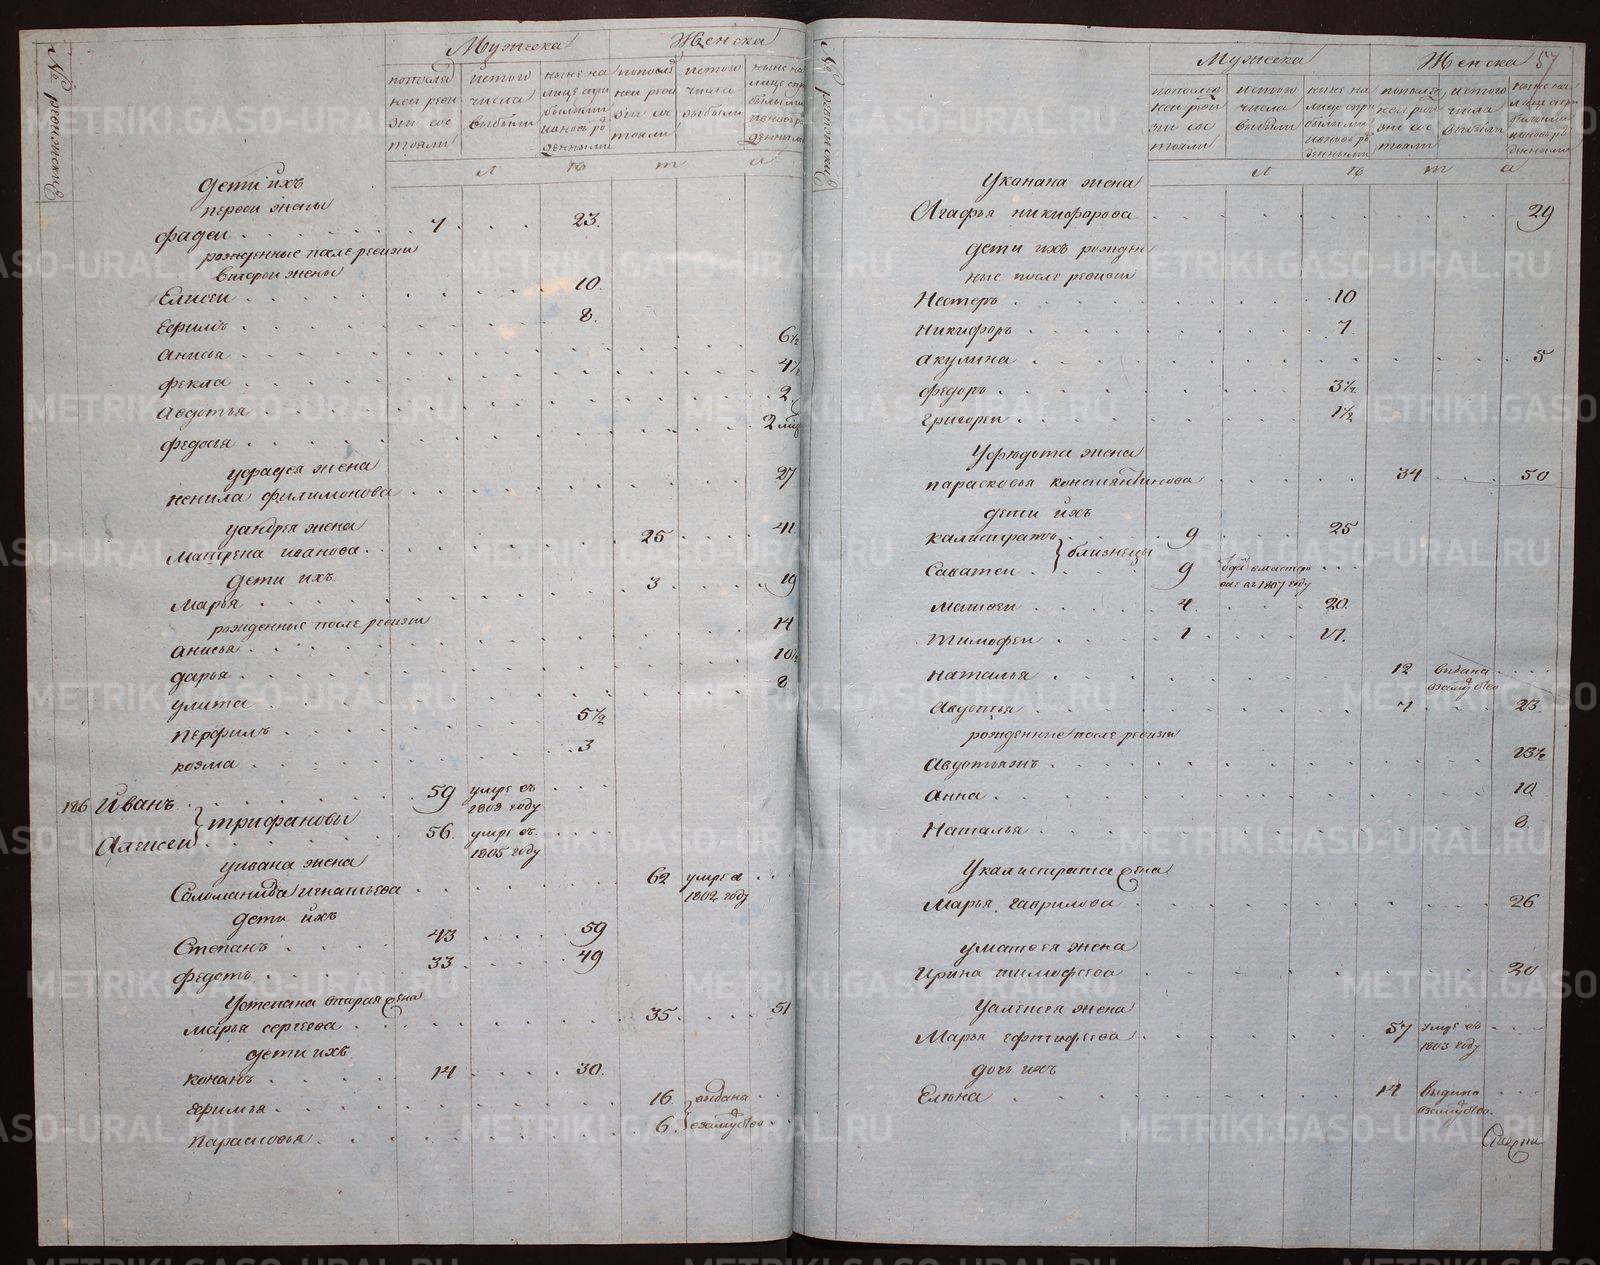 № ревизские
Мужеска
Женска
по последней ревизии состояли
из того числа выбыли
ныне налице с прибылыми и новорожденными
по последней ревизии состояли
из того числа выбыли
ныне налице с прибылыми и новорожденными
л ѣ т а
дети ихъ
первой жены
фадеи 7 23.
рожденные после ревизии
второй жены
Елисеи 10.
Ефримъ 8.
анисья 6½
фекла 4½
авдотья 2
федосья 2 мц
уфадея жена
ненила филимонова 27
уандрея жена
матрена иванова 25 41
дети ихъ
Марья 3 19
рожденные после ревизии
анисья 14
дарья 10½
улита 8
перфилъ 5½
козма 3
186 Иванъ 59 умре въ 1809 году
трифановы
Алексеи 56. умре въ 1805 году
уивана жена
Соломанида игнатьева 62 умреа 1802 году
дети ихъ
Степанъ 43 59
федотъ 33 49
Устепана вторая жена
марья сергеева 35. 51
дети ихъ
конанъ 14 30.
Ефимья 16. выдана
парасковья 6. взамужство.
57
№ ревизские
Мужеска
Женска
по последней ревизии состояли
из того числа выбыли
ныне налице с прибылыми и новорожденными
по последней ревизии состояли
из того числа выбыли
ныне налице с прибылыми и новорожденными
л ѣ т а
Уконана жена
Агафья никифорова 29
дети ихъ рожден
ные после ревизии
Нестеръ 10
никифоръ 7
акулина 5
федоръ 3½
григореи 1½
Уфедота жена
парасковья константинова 34 50
дети ихъ
калистратъ 9 25
близнецы
Саватеи 9 въ 1807 году
матвеи 4. 20.
тимофеи 1 17.
наталья 12 выдана взамужство
Авдотья 7 23
рожденные после ревизии
авдотьяжъ 13½
анна 10
Наталья 8.
Укалистрата жена
Марья гаврилова 26
уматвея жена
Ирина тимофеева 20
Уалексея жена
Марья ефтифеева 57 умре въ 1803 году
дочь ихъ
Елена 14 выдана взамужство.